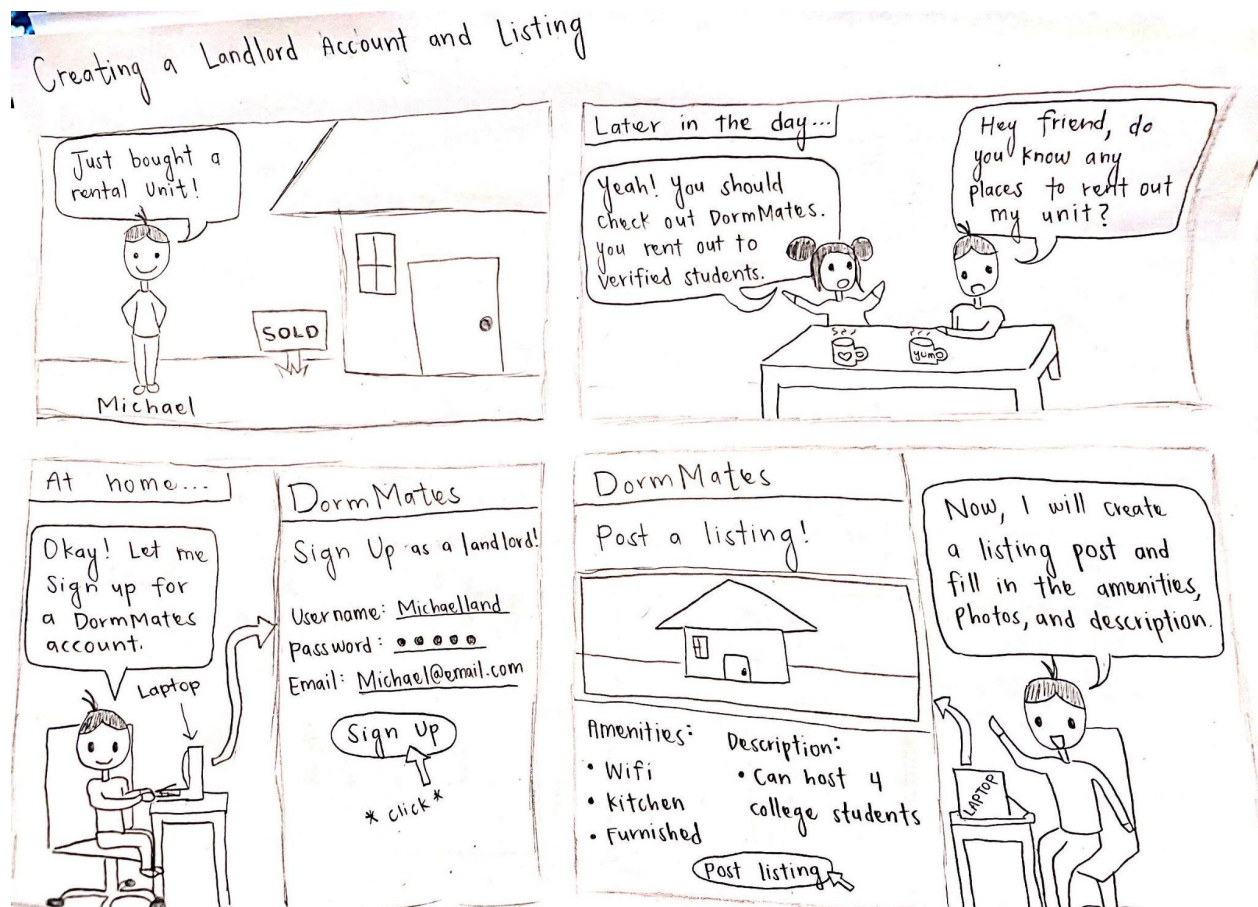 Creating a Landlord Account and Listing
Just bought a
rental unit!
SOLD
Michael
Later in the day...
Hey friend, do
you know any
places to rent out
my unit?
Yeah! You should
check out DormMates.
you rent out to
verified students.
yum
At home...
Okay! Let me
Sign up for
a DormMates
account.
Laptop
DormMates
Sign Up as a landlord!
Username: Michaelland
password: •••••
Email: Michael@email.com
Sign Up
*click*
DormMates
Post a listing!
Amenities:
• Wifi
• Kitchen
• Furnished
Description:
• Can host 4
college students
Post listing
Now, I will create
a listing post and
fill in the amenities,
Photos, and description.
LAPTOP